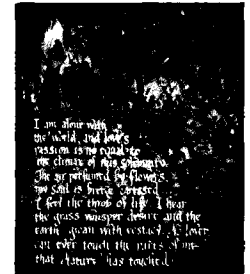 I am alone with
the world, and love's
passion is no equal to
the climax of this
The air perfumed by flowers,
my soul is being caressed
I feel the throb of life I hear
the grass whisper desire and the
earth groan with ecstacy. No lover
can ever touch the parts of me
that Nature has touched.